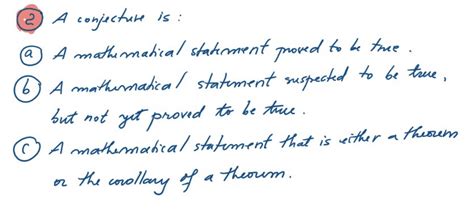 2 A conjecture is :
a A mathematical statement proved to be true .
b A mathematical statement suspected to be true,
but not yet proved to be true .
c A mathematical statement that is either a theorem
or the corollary of a theorem .